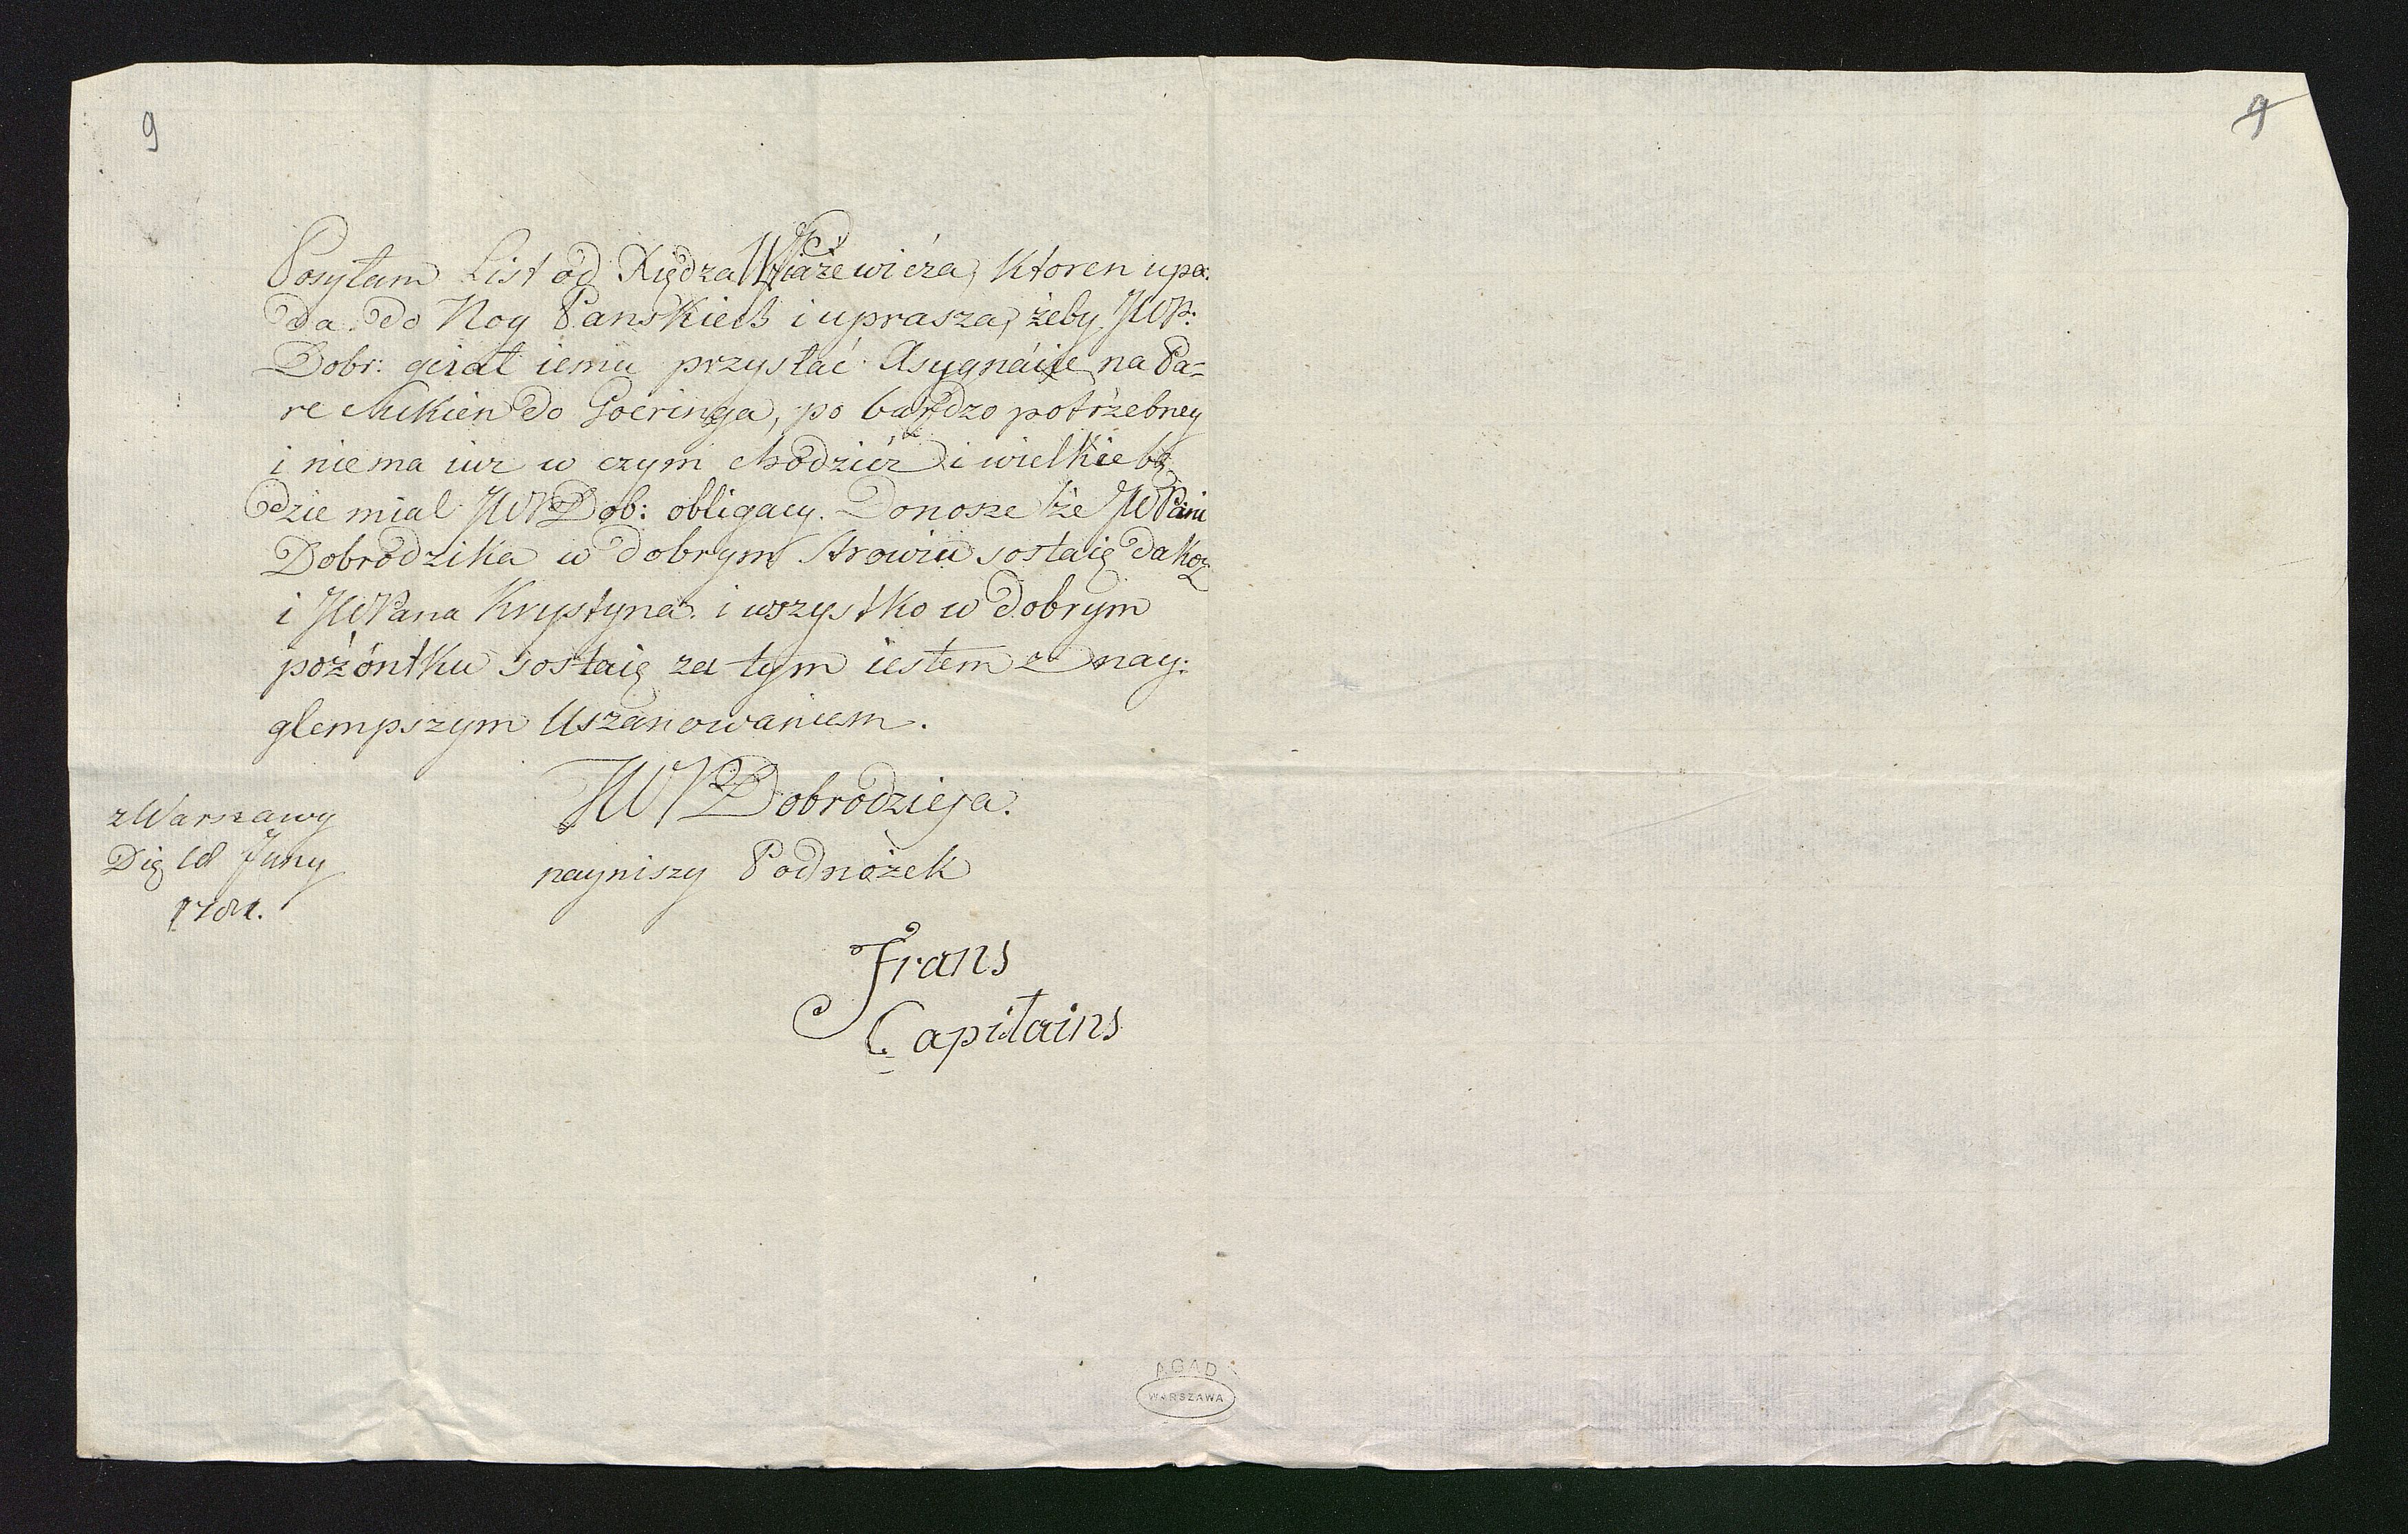 9
9
Posyłam List od Xiędza Wiażewicza, Ktoren upa:
da do Nog Panskich i uprasza, żeby JWP:
Dobr: gciał iemu przysłać Asygnácie na Pa-
re Sukien do Goeringa, po bardzo potrżebney
i niema iuz w czym chodzicz i wielkie bę
dzie mial JWPDob: obligacy. Donosze że JWPani
Dobrodzika w dobrym strowiu sostaię dakoż
i JWPana Krystyna. i wszystko w dobrym
pożóntku sostaię za tym iestem z nay:
glempszym Uszanowaniem.
JWPDobrodzieja.
nayniszy Podnożek
zWarszawy
Dię 18 Juny
1781.
Frans
Capitains
AGAD
WARSZAWA